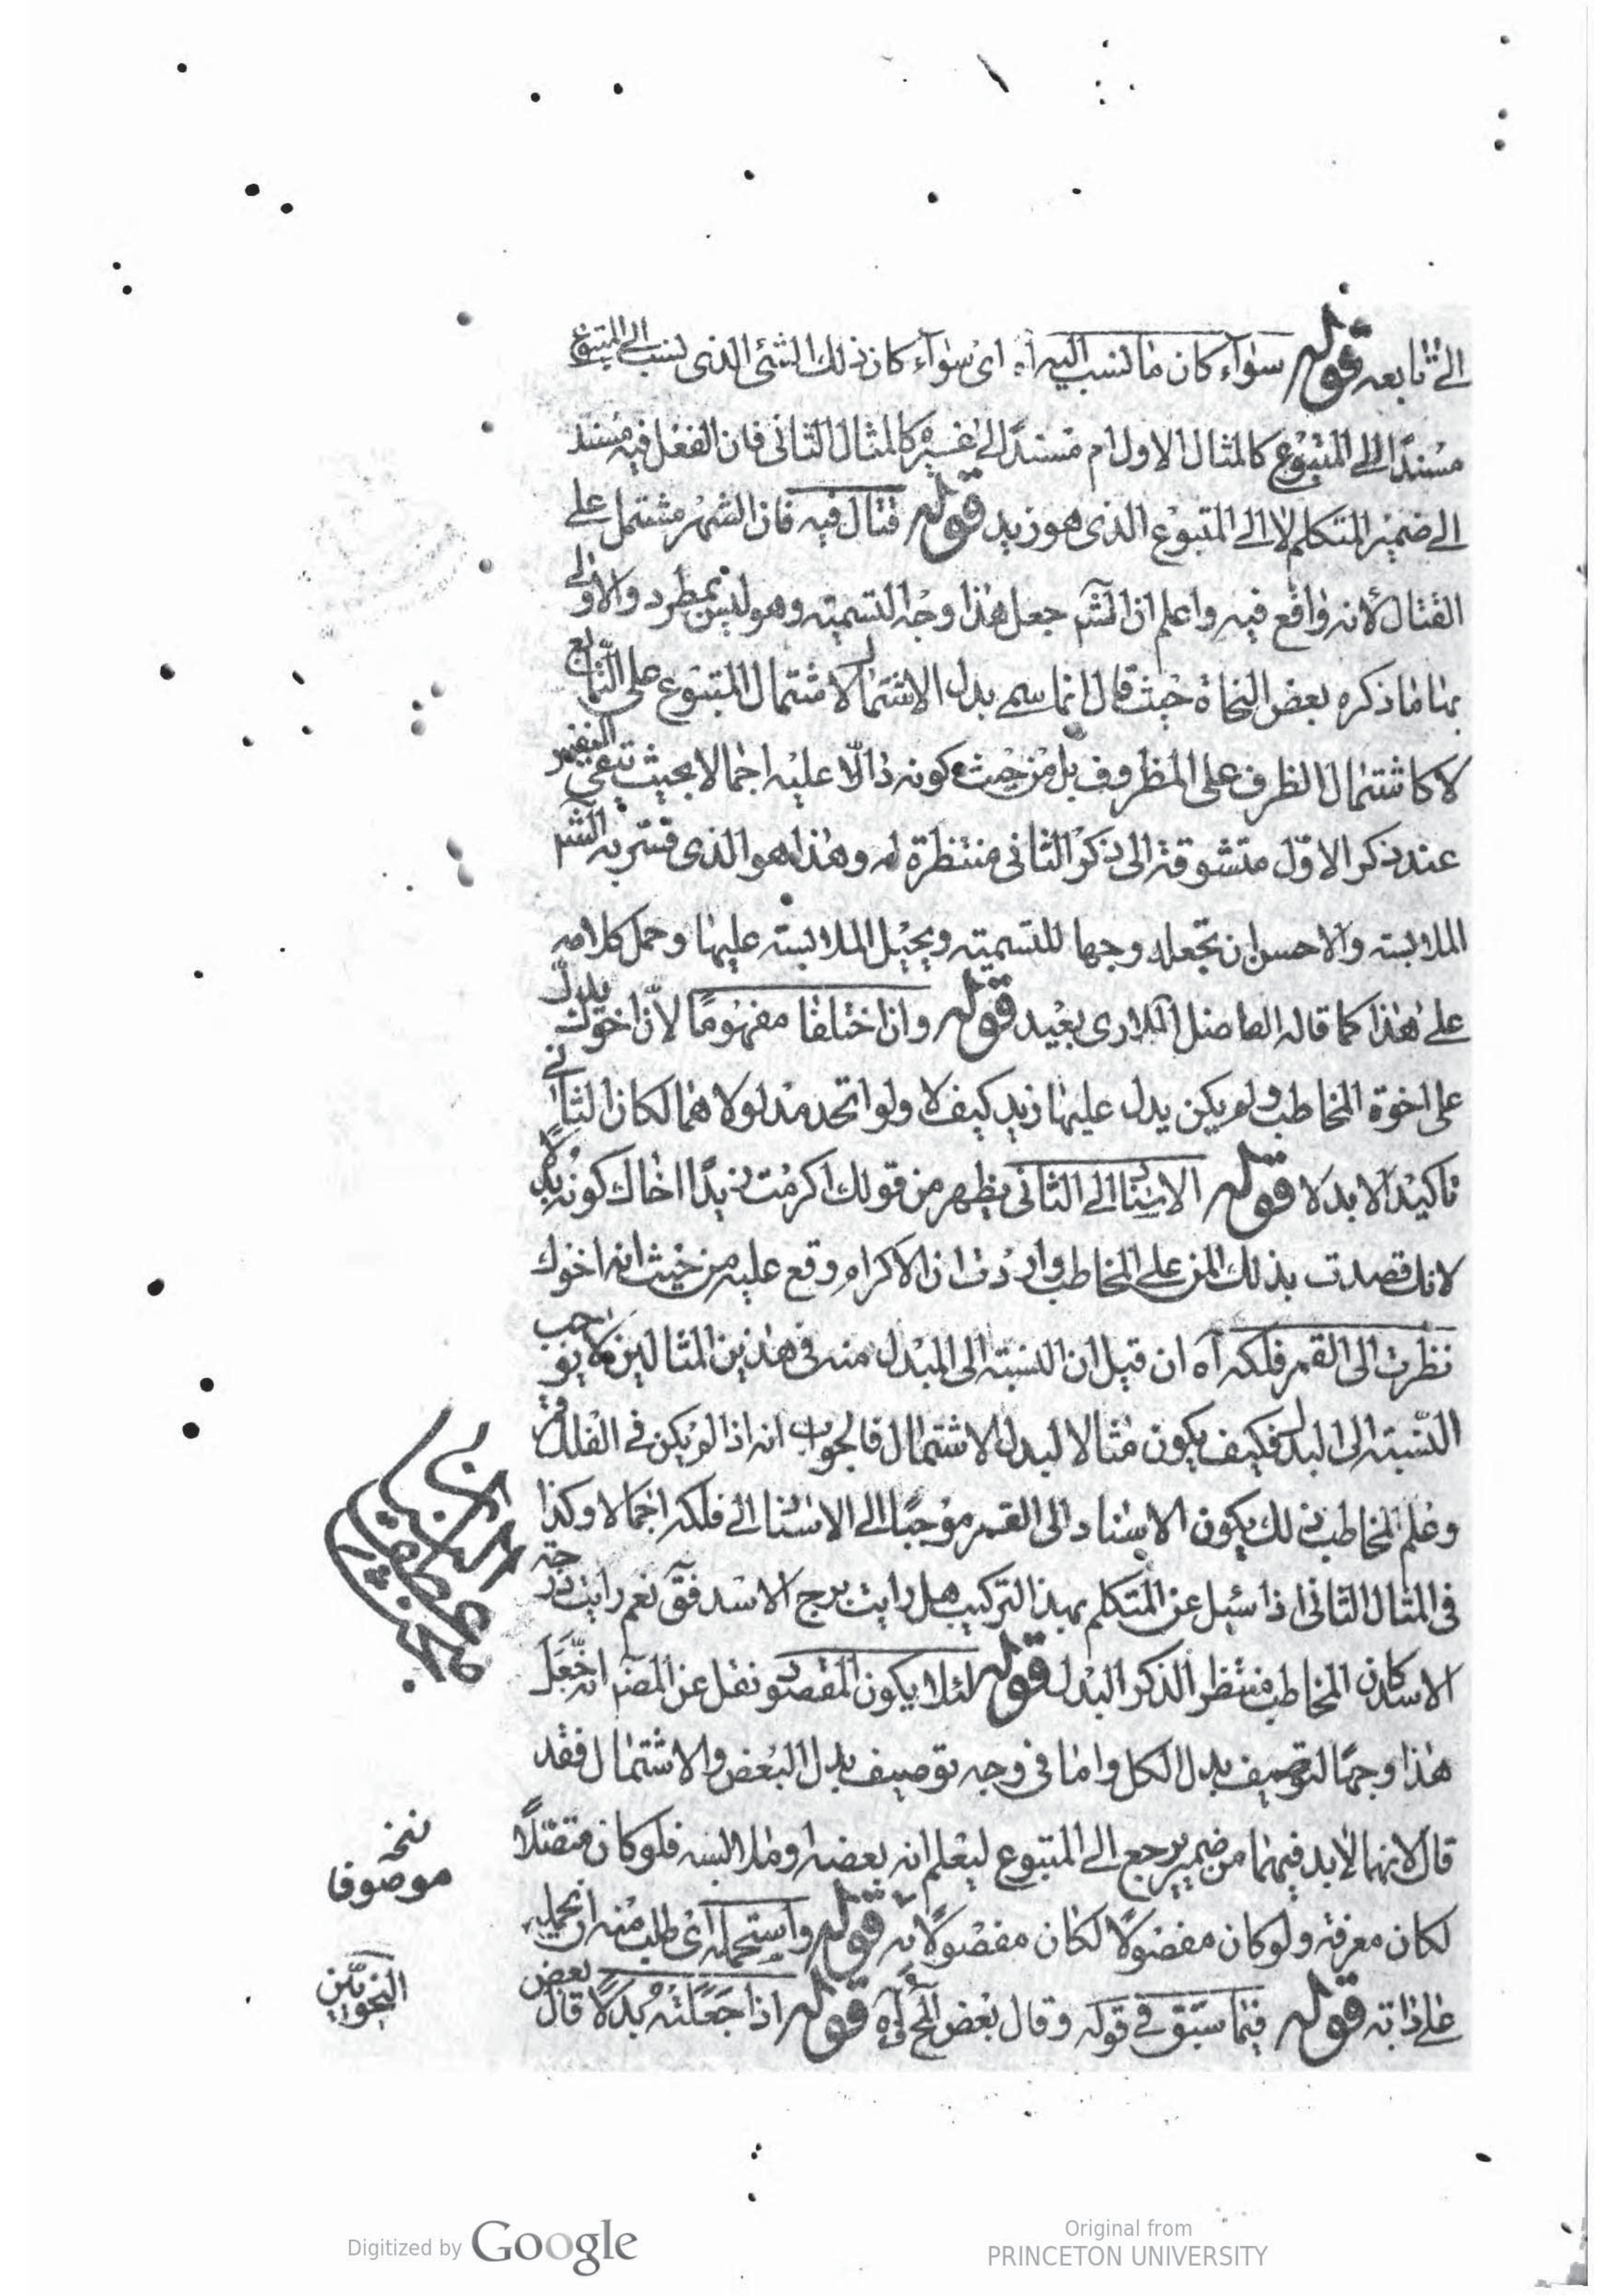 الى تابعه قوله سوآء كان ما نسب اليه آه اى سوآء كان ذلك الشئ الذى نسب الى المتبوع
مسندًا الى المتبوع كالمثال الاول ام مسندًا الى غيره كالمثال الثانى فان الفعل فيه مسند
الى ضمير المتكلم لا الى المتبوع الذى هو زيد قوله قتال فيه فان الشهر مشتمل على
القتال لانه واقع فيه واعلم ان الشم جعل هذا وجه التسميته وهو ليس بمطرد والاولى
بها ما ذكره بعض النحاة حيث قال انما سمى بدل الاشتمال لاشتمال المتبوع على التابع
لا كاشتمال الظرف على المظروف بل من حيث كونه دالّا عليه اجمالا بحيث تبقى النفس
عند ذكر الاوّل متشوقة الى ذكر الثانى منتظرة له وهذا هو الذى فسّر به الشم
الملابسته والاحسن ان تجعله وجها للتسميته ويحيل الملابسته عليها وحمل كلامه
على هذا كما قاله الفاضل اللارى بعيد قوله وان اختلفا مفهومًا لانّ اخوك يدلّ
على اخوة المخاطب ولم يكن يدل عليها زيد كيف لا ولو اتحد مدلولاهما لكان الثانى
تاكيدا لا بدلا قوله الاسناد الى الثانى يظهر من قولك اكرمت زيدًا اخاك كونه بدلًا
لانك قصدت بذلك المن على المخاطب واردت ان الاكرام وقع عليه من حيث انه اخوك
نظرت الى القمر فلكه آه ان قيل ان النسبته الى المبدل منه فى هذين المثالين لا يوجب
النسبته الى البدل فكيف يكون مثالا لبدل الاشتمال فالجواب انه اذا لم يكن فى الفلك
وعلم المخاطب ذلك يكون الاسناد الى القمر موجبًا الى الاسناد الى فلكه اجمالا وكذا
فى المثال الثانى اذا سئل عن المتكلم بهذا التركيب هل رايت برج الاسد فقآ نعم رايت درجة
الاسد كان المخاطب منتظر الذكر البدل قوله لئلا يكون المقصود نقل عن المصم انه جعل
هذا وجهًا لتوصيف بدل الكل واما فى وجه توصيف بدل البعض والاشتمال فقد
قال لانهما لابد فيهما من ضمير يرجع الى المتبوع ليعلم انه بعضه او ملابسه فلو كان متصلًا
لكان معرفة ولو كان مفصولًا لكان مفصولًا به قوله واستحمله اى طلب منه ان يحمله
على ذاته قوله فيما سبق فى قوله وقال بعض آه قوله اذا جعلته بدلًا قال بعض
نسخه
موصوفا
النحويّين